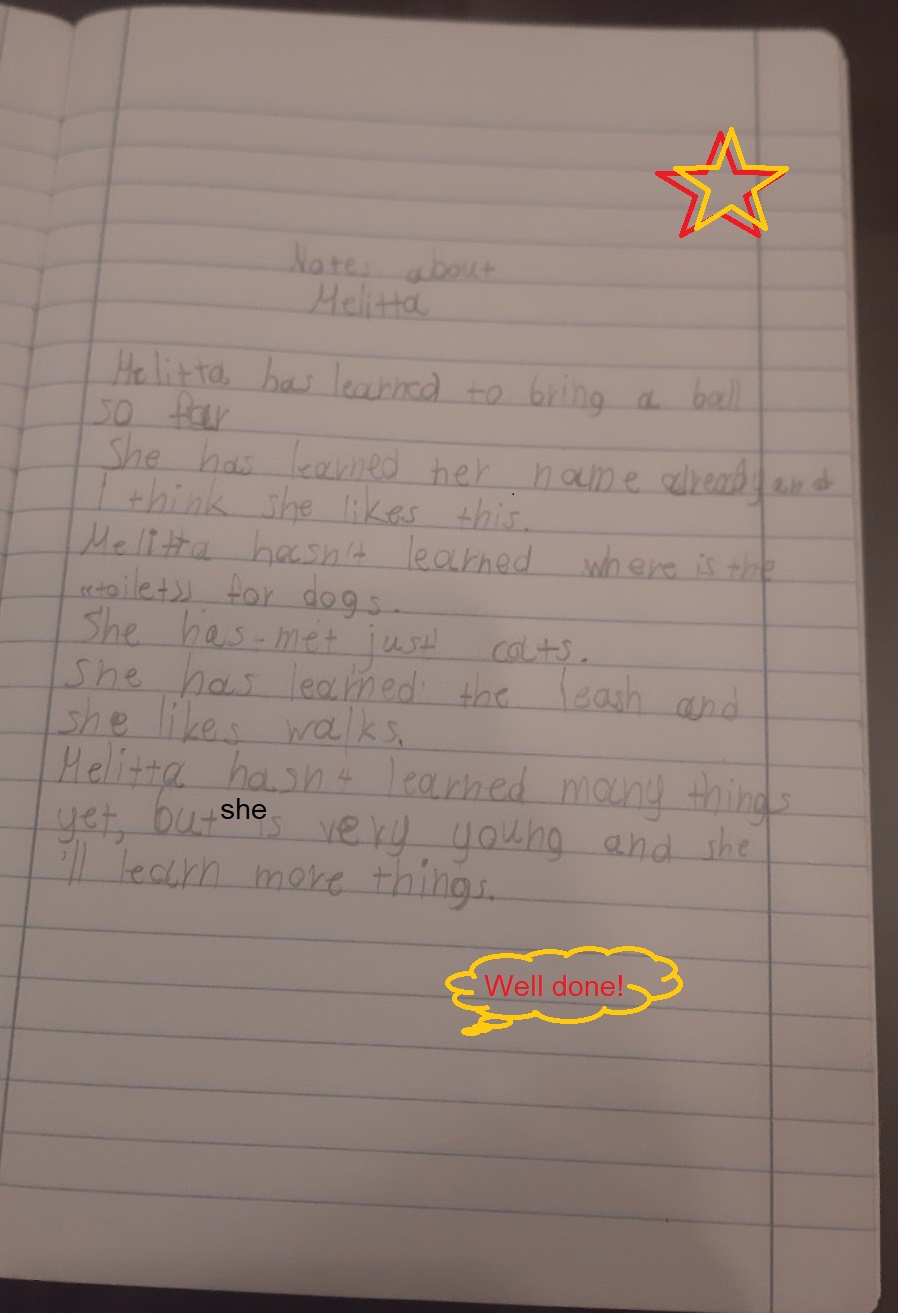 Notes about
Melitta
Melitta has learned to bring a ball
so far
She has learned her name already and
I think she likes this.
Melitta hasn't learned where is the
«toilet» for dogs.
She has met just cats.
She has learned the leash and
she likes walks.
Melitta hasn't learned many things
yet, but she is very young and she
'll learn more things.
Well done!